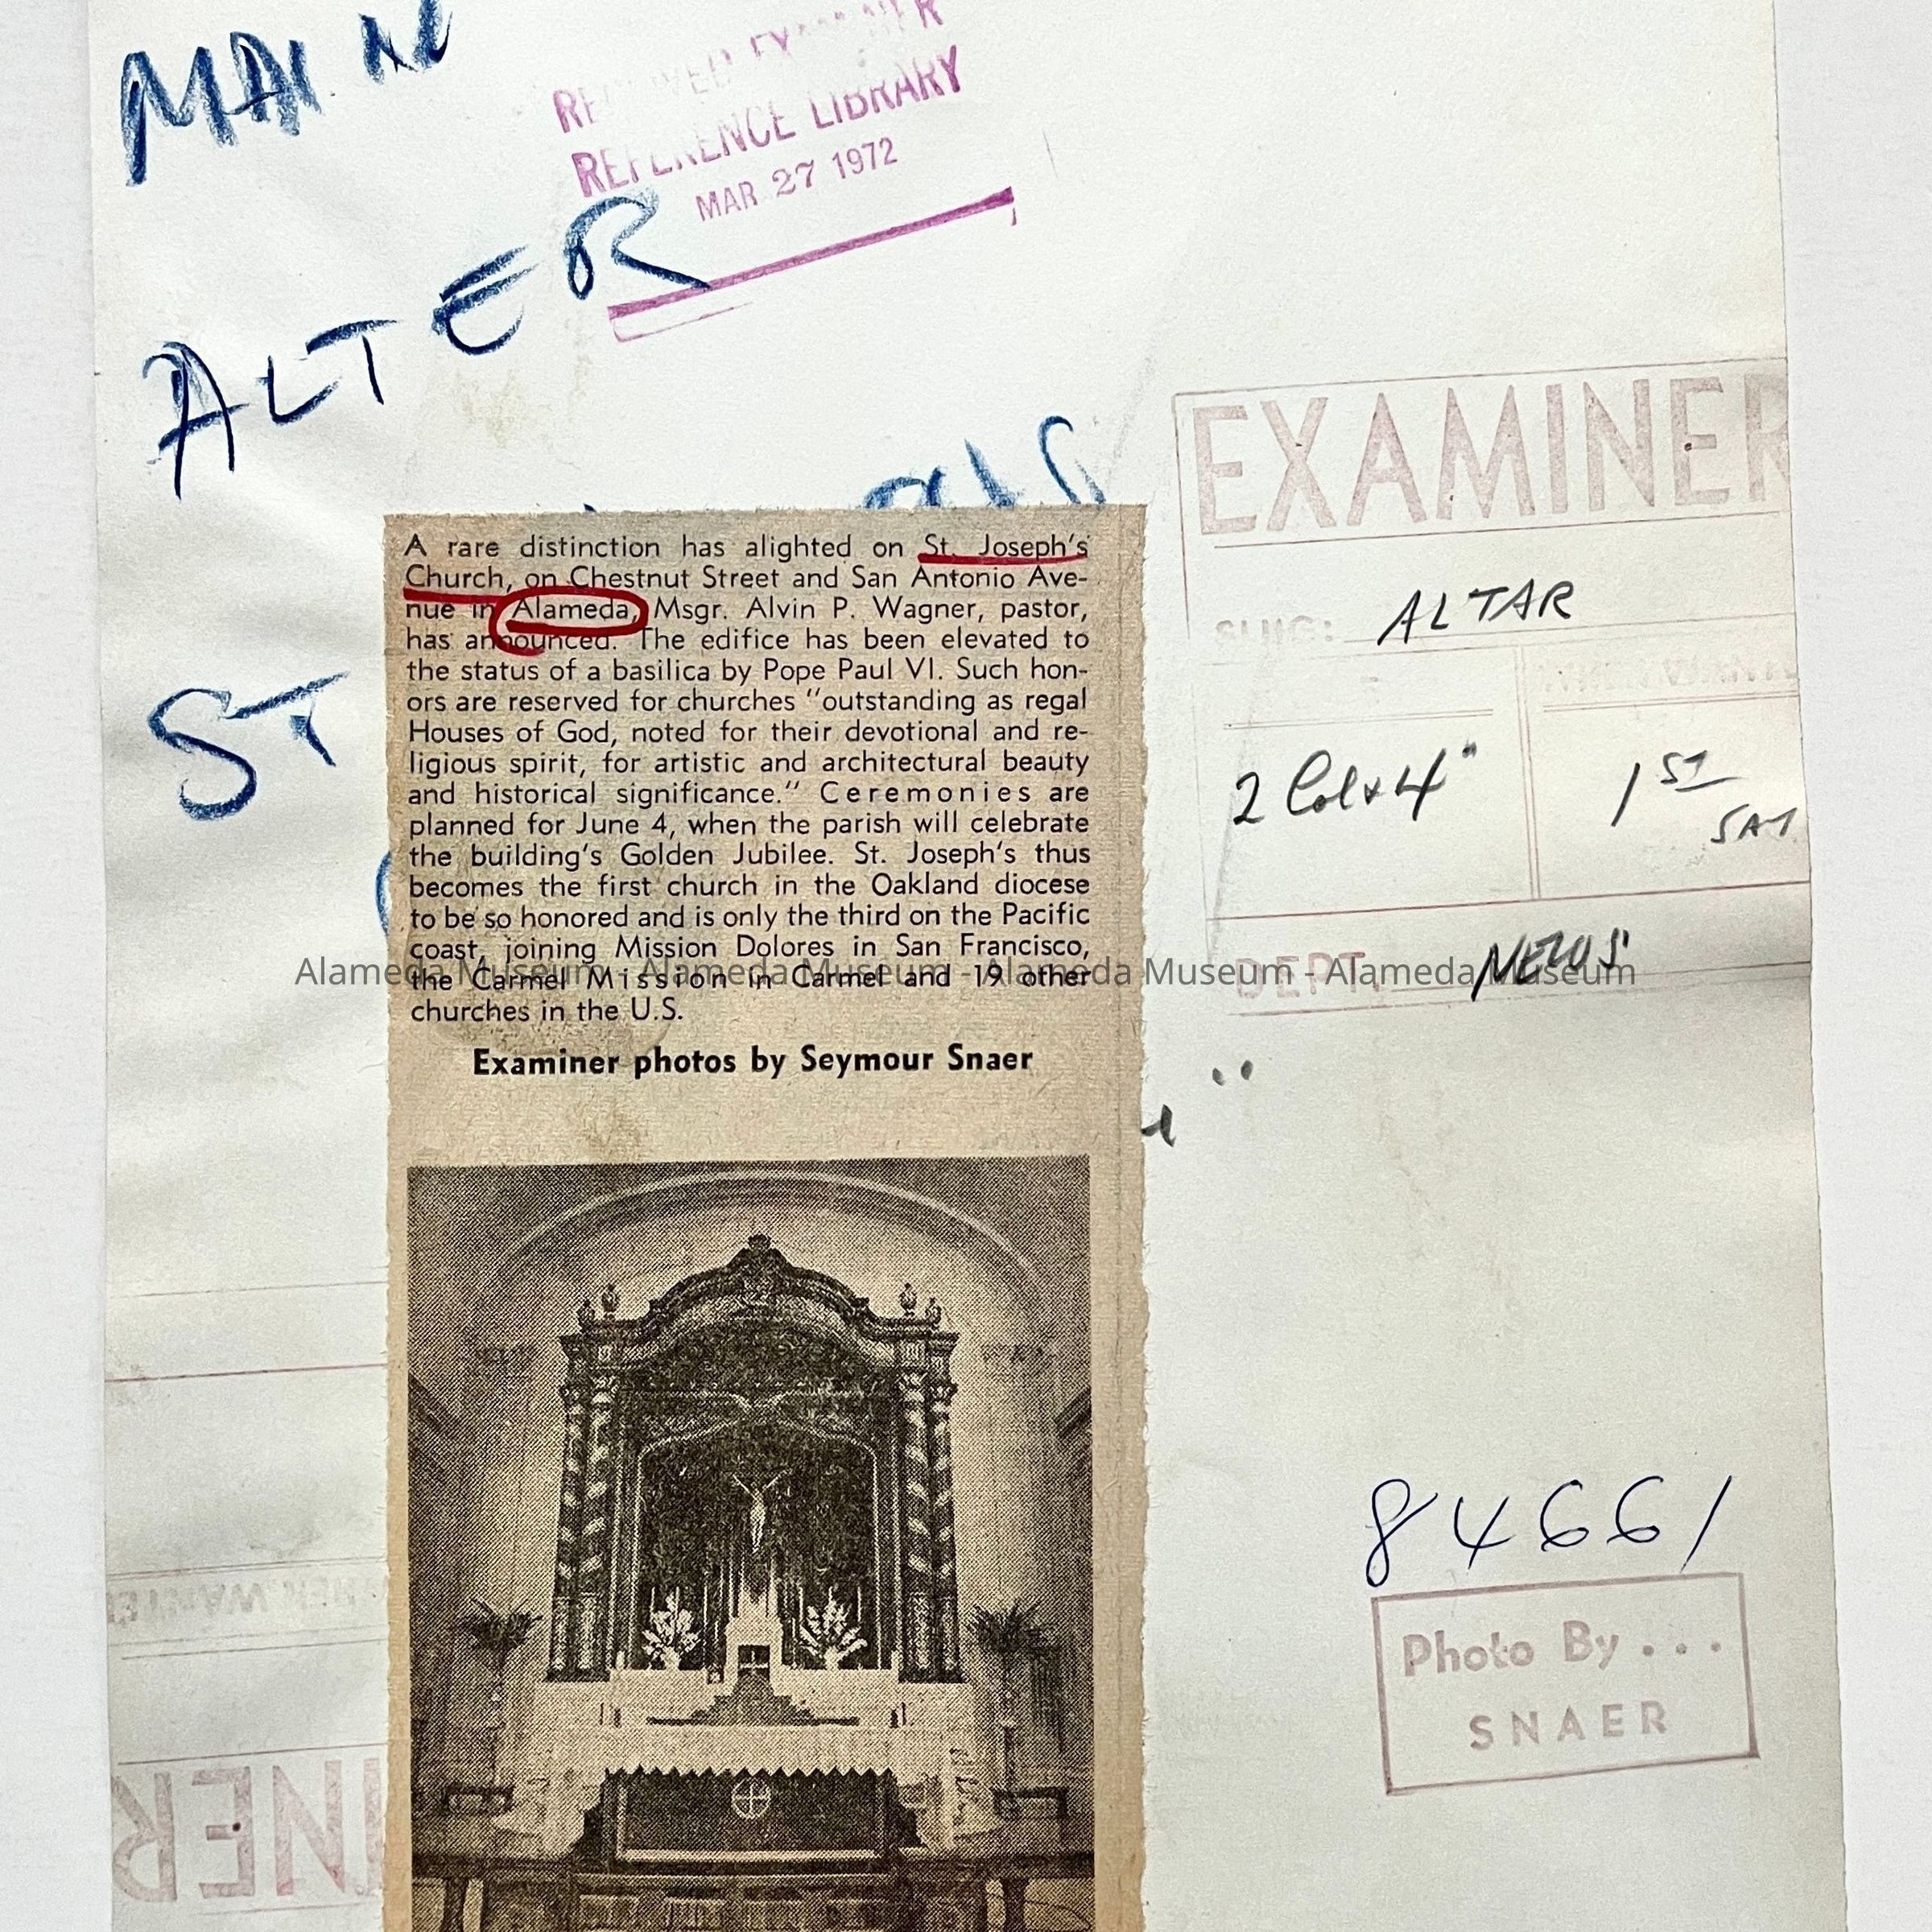 MAIN
REFERENCE LIBRARY
MAR 27 1972
ALTER
ST
A rare distinction has alighted on St. Joseph's
Church, on Chestnut Street and San Antonio Ave-
nue in Alameda, Msgr. Alvin P. Wagner, pastor,
has announced. The edifice has been elevated to
the status of a basilica by Pope Paul VI. Such hon-
ors are reserved for churches "outstanding as regal
Houses of God, noted for their devotional and re-
ligious spirit, for artistic and architectural beauty
and historical significance." Ceremonies are
planned for June 4, when the parish will celebrate
the building's Golden Jubilee. St. Joseph's thus
becomes the first church in the Oakland diocese
to be so honored and is only the third on the Pacific
coast, joining Mission Dolores in San Francisco,
the Carmel Mission in Carmel and 19 other
churches in the U.S.
Examiner photos by Seymour Snaer
EXAMINER
SLUG: ALTAR
2 Col x 4"
1ST
SAT.
DEPT. NEWS
Alameda Museum - Alameda Museum - Alameda Museum - Alameda Museum
84661
Photo By . . .
SNAER